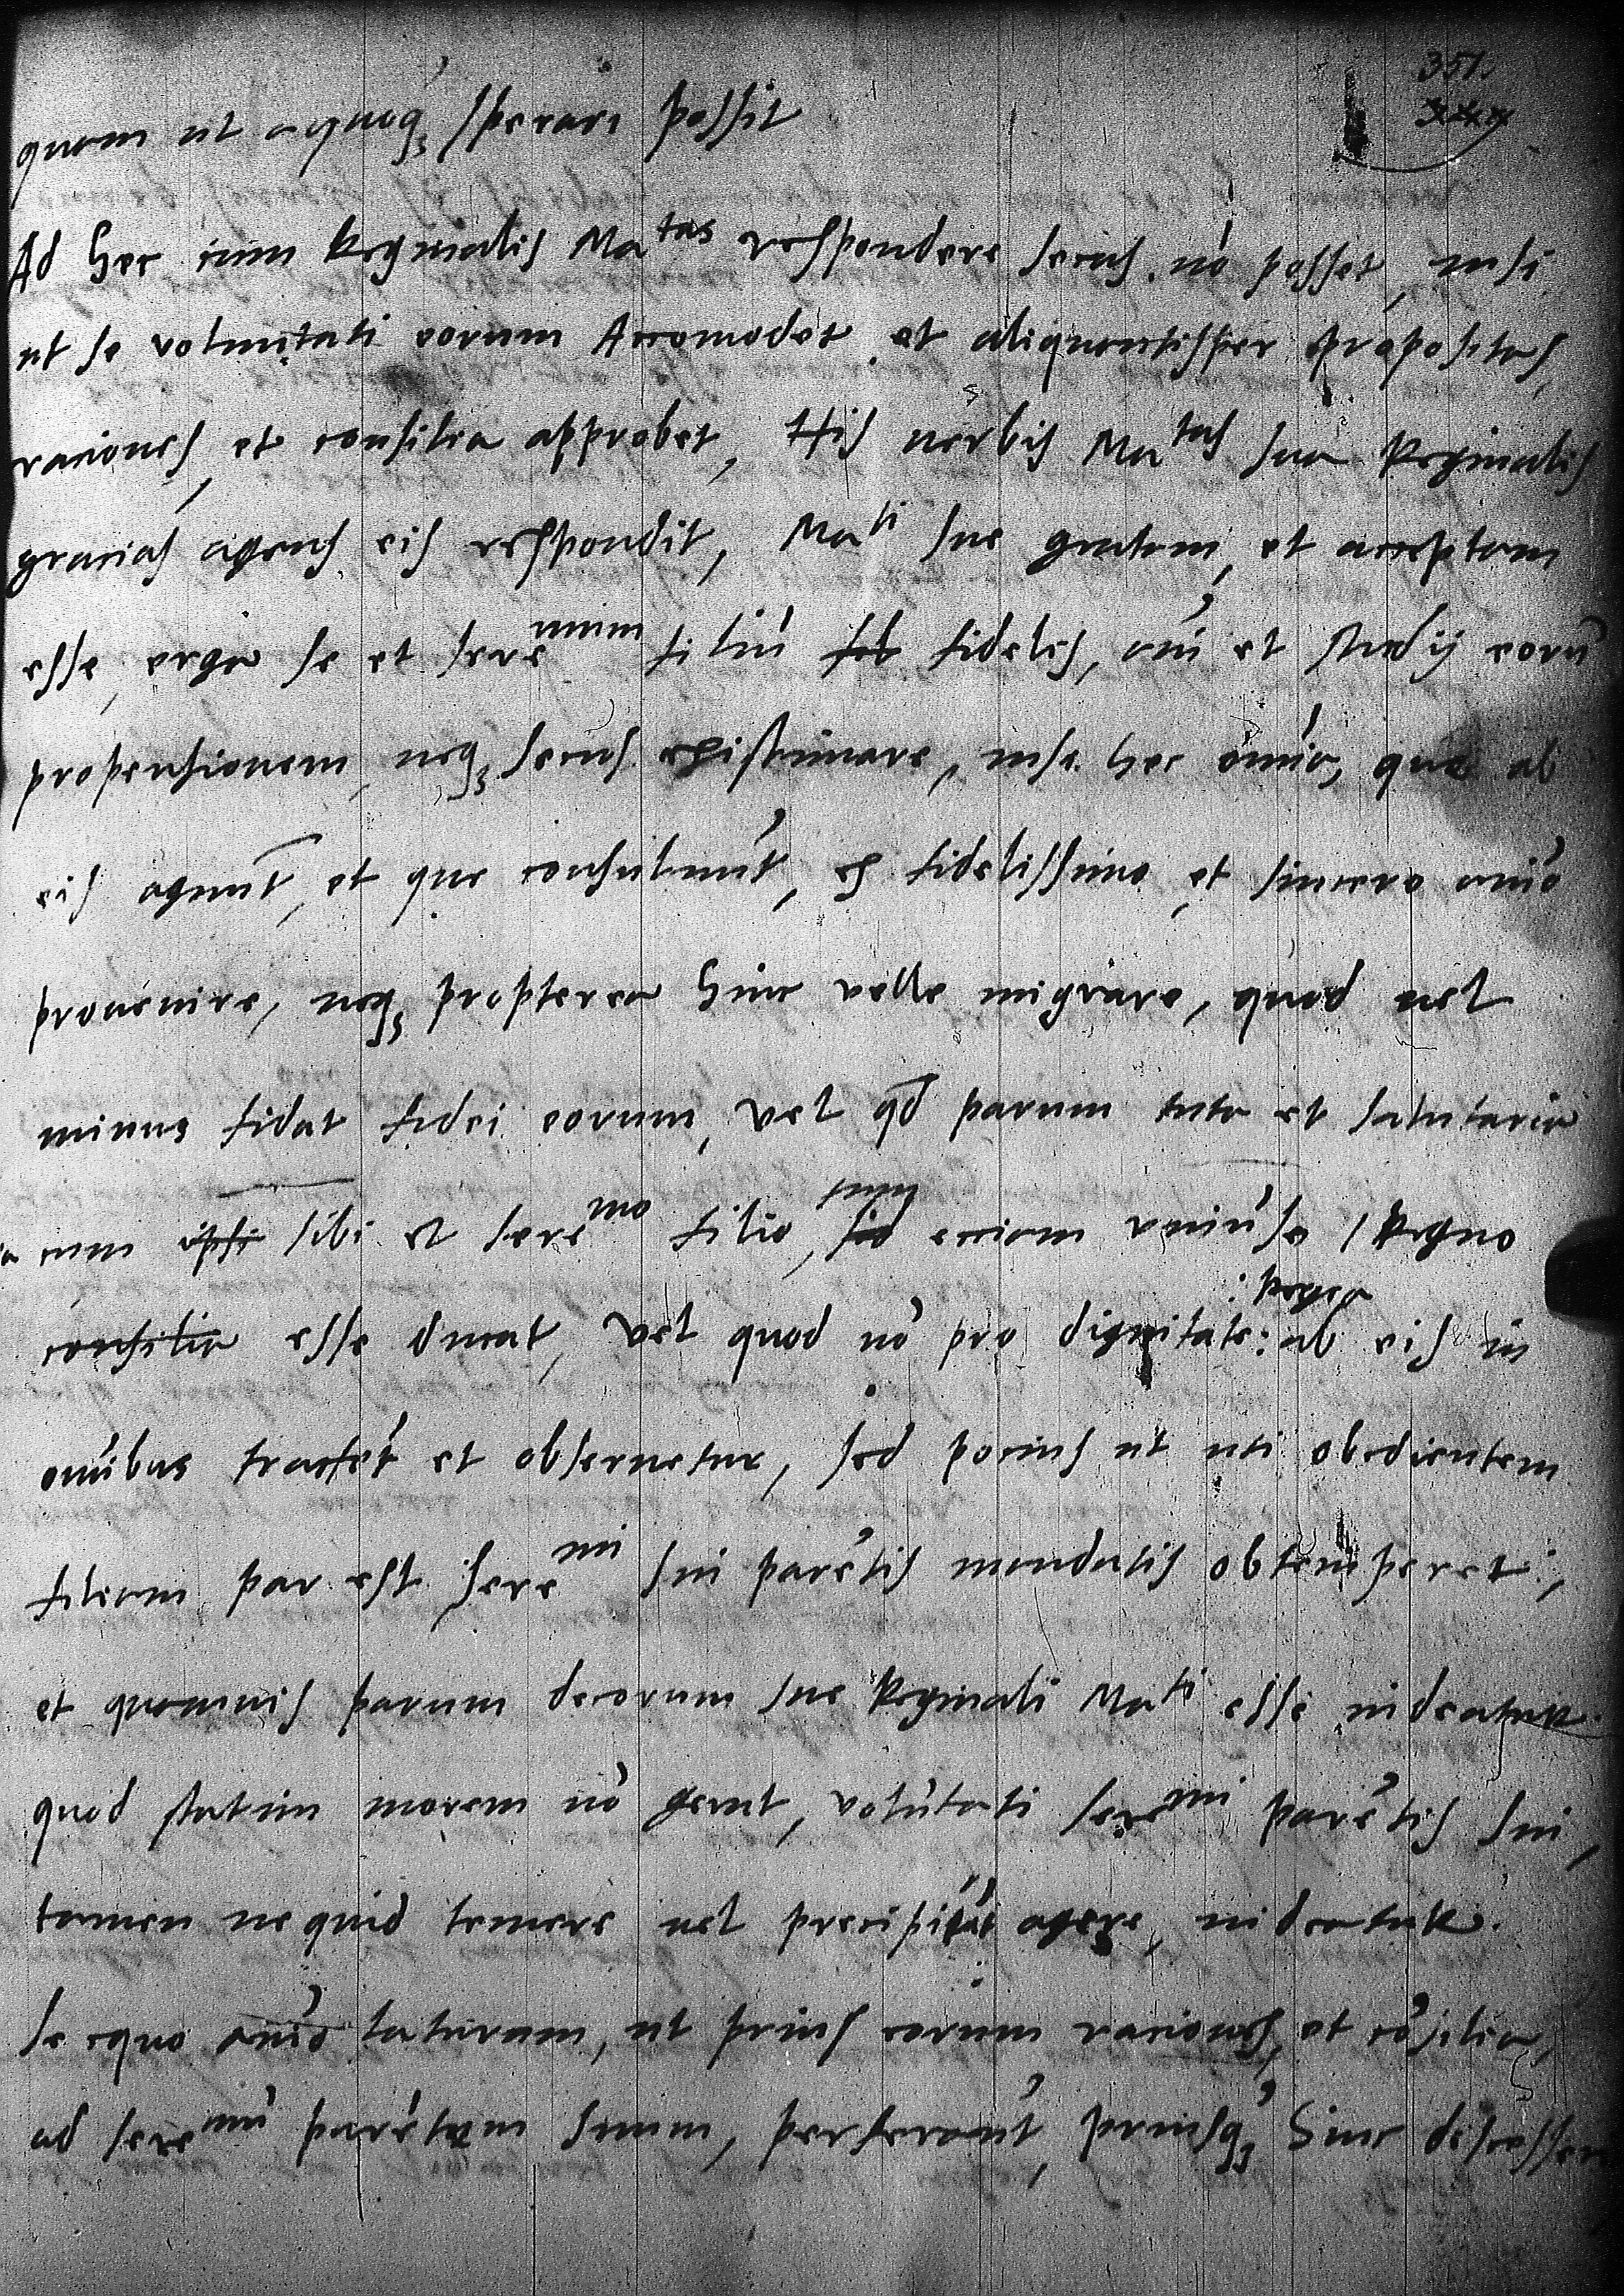 351.
quam ut a quoq; sperari possit
Ad hec cum Reginalis Ma^tas respondere secus nõ posset, nisi
ut se voluntati eorum Accomodet et aliquantisper propositas,
raciones, et consilia approbet, His uerbis Ma^tas sua Reginalis
gracias agens eis respondit, Ma^ti sue gratam, et acceptam
esse, erga se et sere^mum filiũ fidelis, ãni et studij eorũ
propensionem, neq; secus existimare, nisi hec omnia, que ab
eis agunt̃, et que consulunt̃, ex fidelissimo, et sincero anĩo
prouenire, neq; propterea hinc velle migrare, quod uel
minus fidat fidei eorum, vel qd̃ parum tuta et salutaria
cum ipsi sibi et sere^mo filio, tum eciam uniũse Regno
: Regea
consilia esse ducat, vel quod nõ pro dignitate: ab eis in
omĩbus tractet̃ et obseruetur, sed pocius ut uti obedientem
filiam par est sere^mi sui parẽtis mandatis obtemperet:,
et quamuis parum decorum sue Reginali Ma^ti esse uideatur.
quod statim morem nõ gerat, volũtati sere^mi parẽtis sui,
tamen ne quid temere uel precipitãt agere, uideatur.
se equo anĩo laturam, ut prius eorum raciones, et cõsilia,
ad sere^mũ parẽtem suum, perferant̃, priusq; hinc discesser